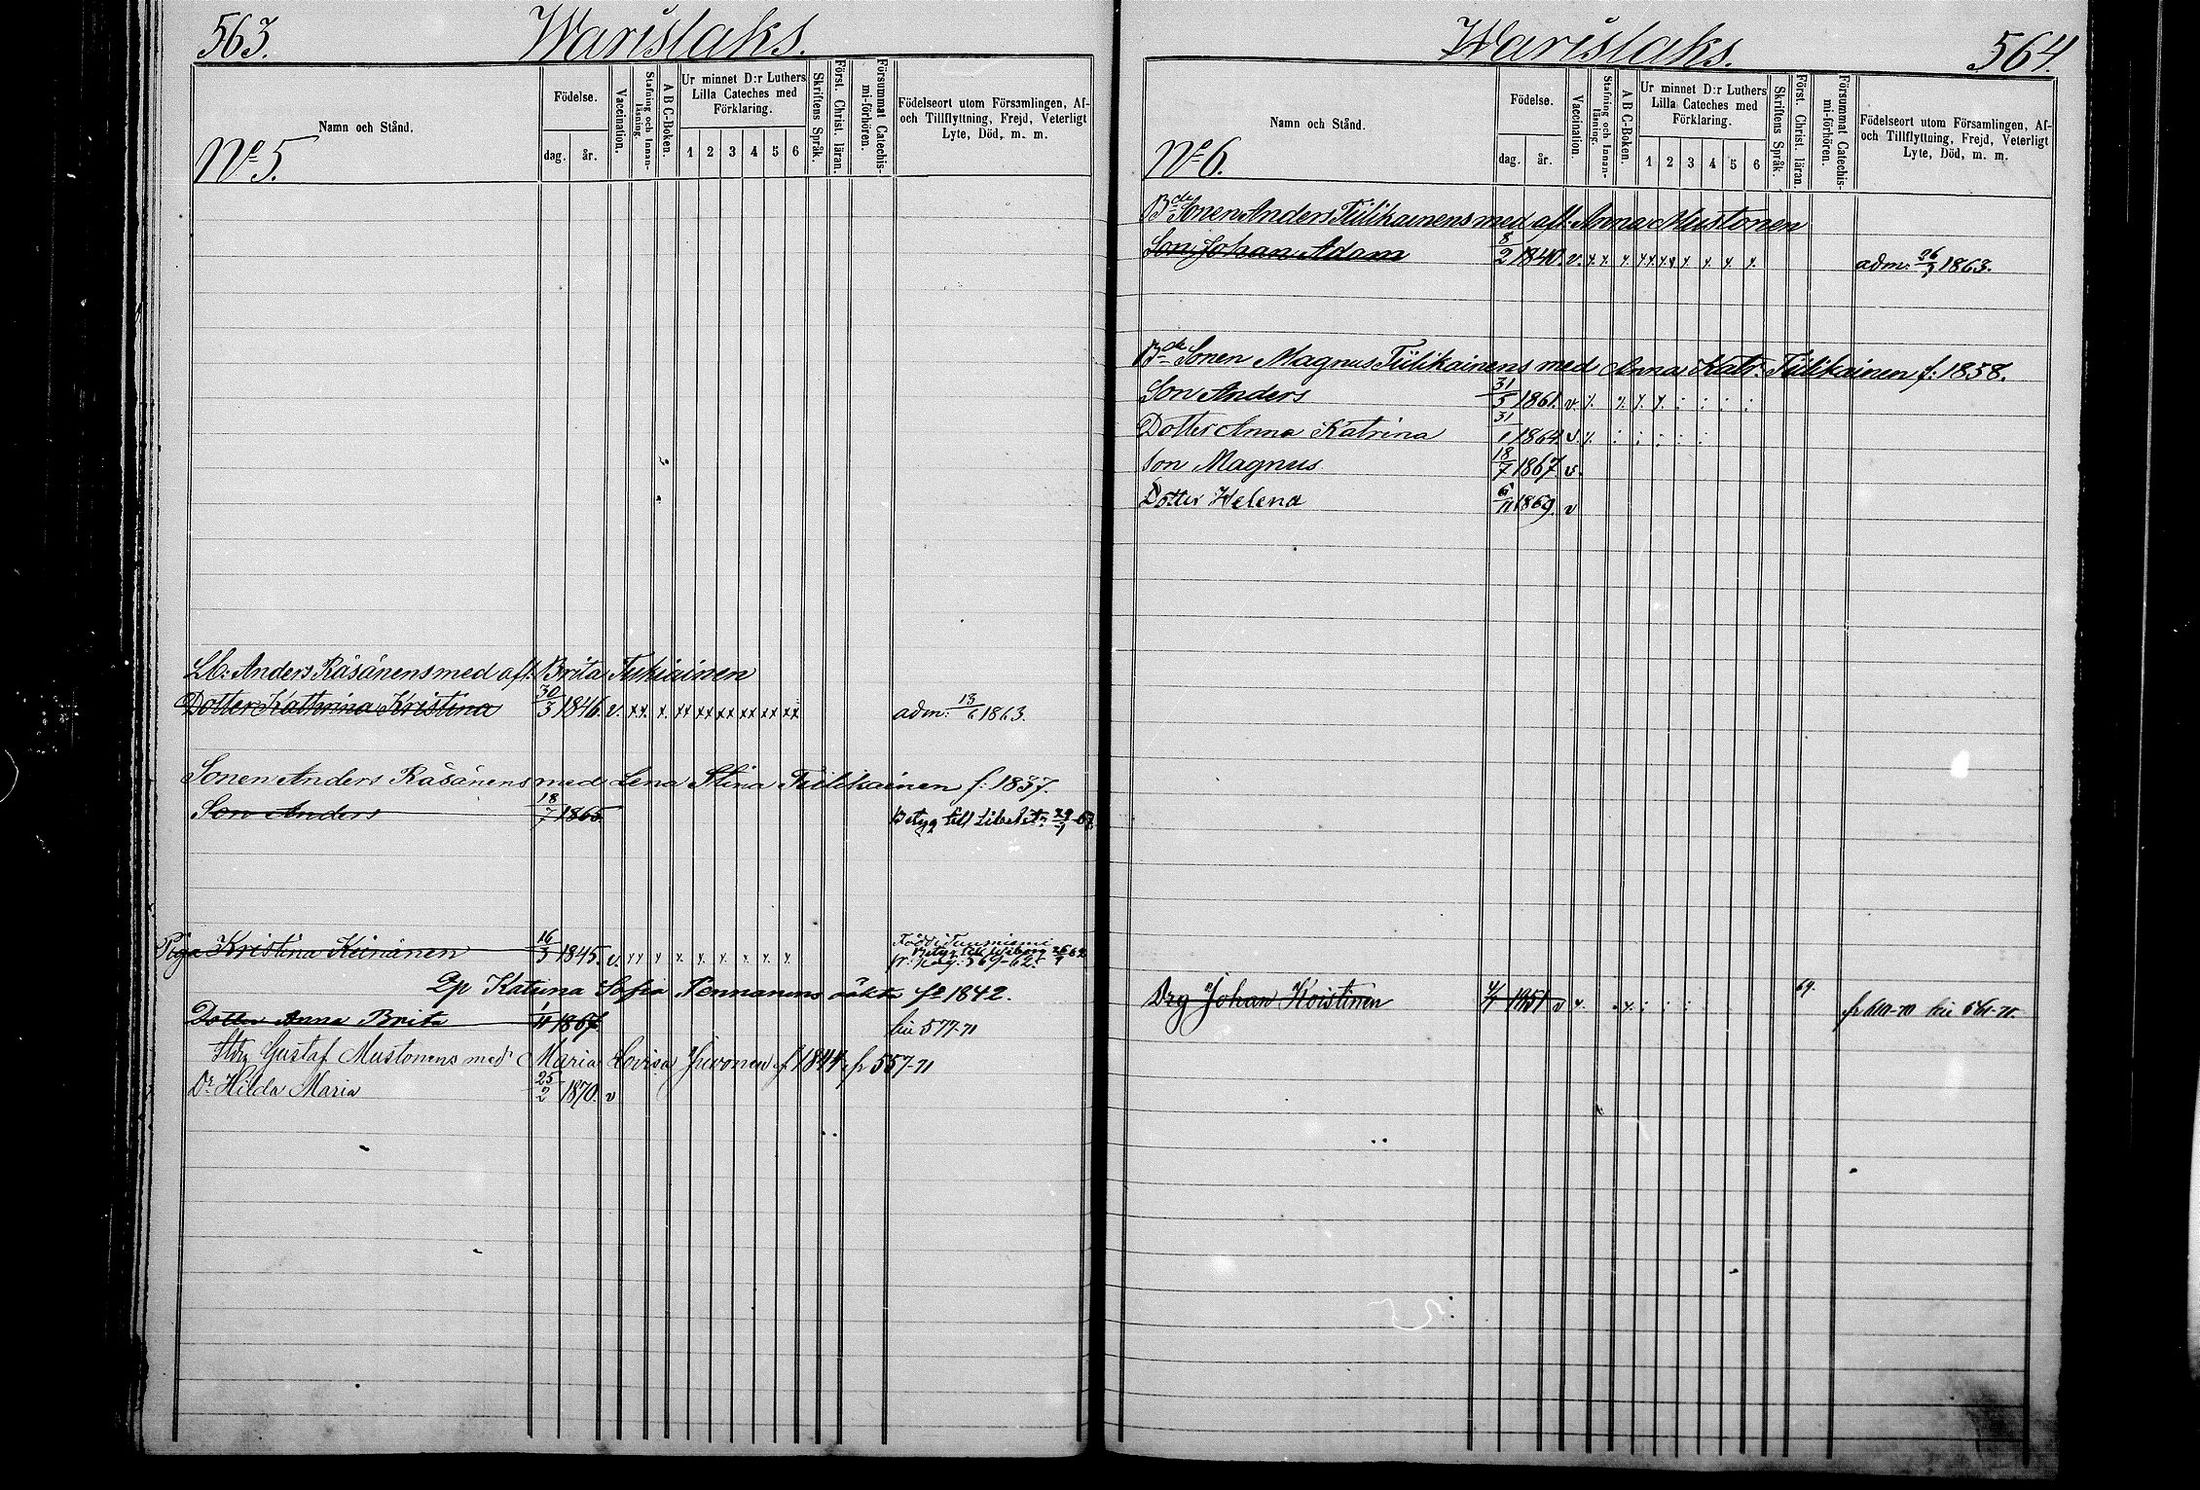 563. Warislaks.
Namn och Stånd.
Födelse.
dag. år.
Vaccination.
Stafning och Innan-läsning.
A B C-Boken.
Ur minnet D:r Luthers Lilla Cateches med Förklaring.
1 2 3 4 5 6
Skriftens Språk.
Först. Christ. läran.
Försummat Catechis-mi-förhören.
Födelseort utom Församlingen, Af- och Tillflyttning, Frejd, Veterligt Lyte, Död, m. m.
No 5.
Lb: Anders Räsänens med aft: Brita Tukiainen
Dotter Kathrina Kristina 30/3 1846. v. xx. x. xx xx xx xx xx xx adm: 13/6 1863.
Sonen Anders Räsänens med Lena Stina Tiilikainen f: 1837.
Son Anders 18/7 1865 Betyg till Libelits
Piga Kristina Keinänen 16/3 1845. v. xx x x x x x x x
Född i Tuusniemi
Betyg till Wiborg
fr: pag: 569-62.
Katrina Sofia Pennanens oäkta fd 1842.
Dotter Anna Brita 1/11 1867 hit 577-71
Gustaf Mustonens med Maria Lovisa Hivonen f 1844 fr 557-71
Dr Hilda Maria 25/2 1870. v
Warislaks. 564.
Namn och Stånd.
Födelse.
dag. år.
Vaccination.
Stafning och Innan-läsning.
A B C-Boken.
Ur minnet D:r Luthers Lilla Cateches med Förklaring.
1 2 3 4 5 6
Skriftens Språk.
Först. Christ. läran.
Försummat Catechis-mi-förhören.
Födelseort utom Församlingen, Af- och Tillflyttning, Frejd, Veterligt Lyte, Död, m. m.
No 6.
Bde Sonen Anders Tiilikainens med aft. Anna Mustonen
Son Johan Adam 8/2 1840. v. x x x. xx xx x x x x. adm. 26/7 1863.
Bde Sonen Magnus Tiilikainens med Anna Katr. Tiilikainen f: 1838.
Son Anders 31/5 1861. v. x. x. x. x. : : : :
Dotter Anna Katrina 31/1 1864. v. x. : : : : :
Son Magnus 18/7 1867. v.
Dotter Helena 6/11 1869. v
Drg Johan Koistinen 1851 v x. x. : : : 69. fr 610-70